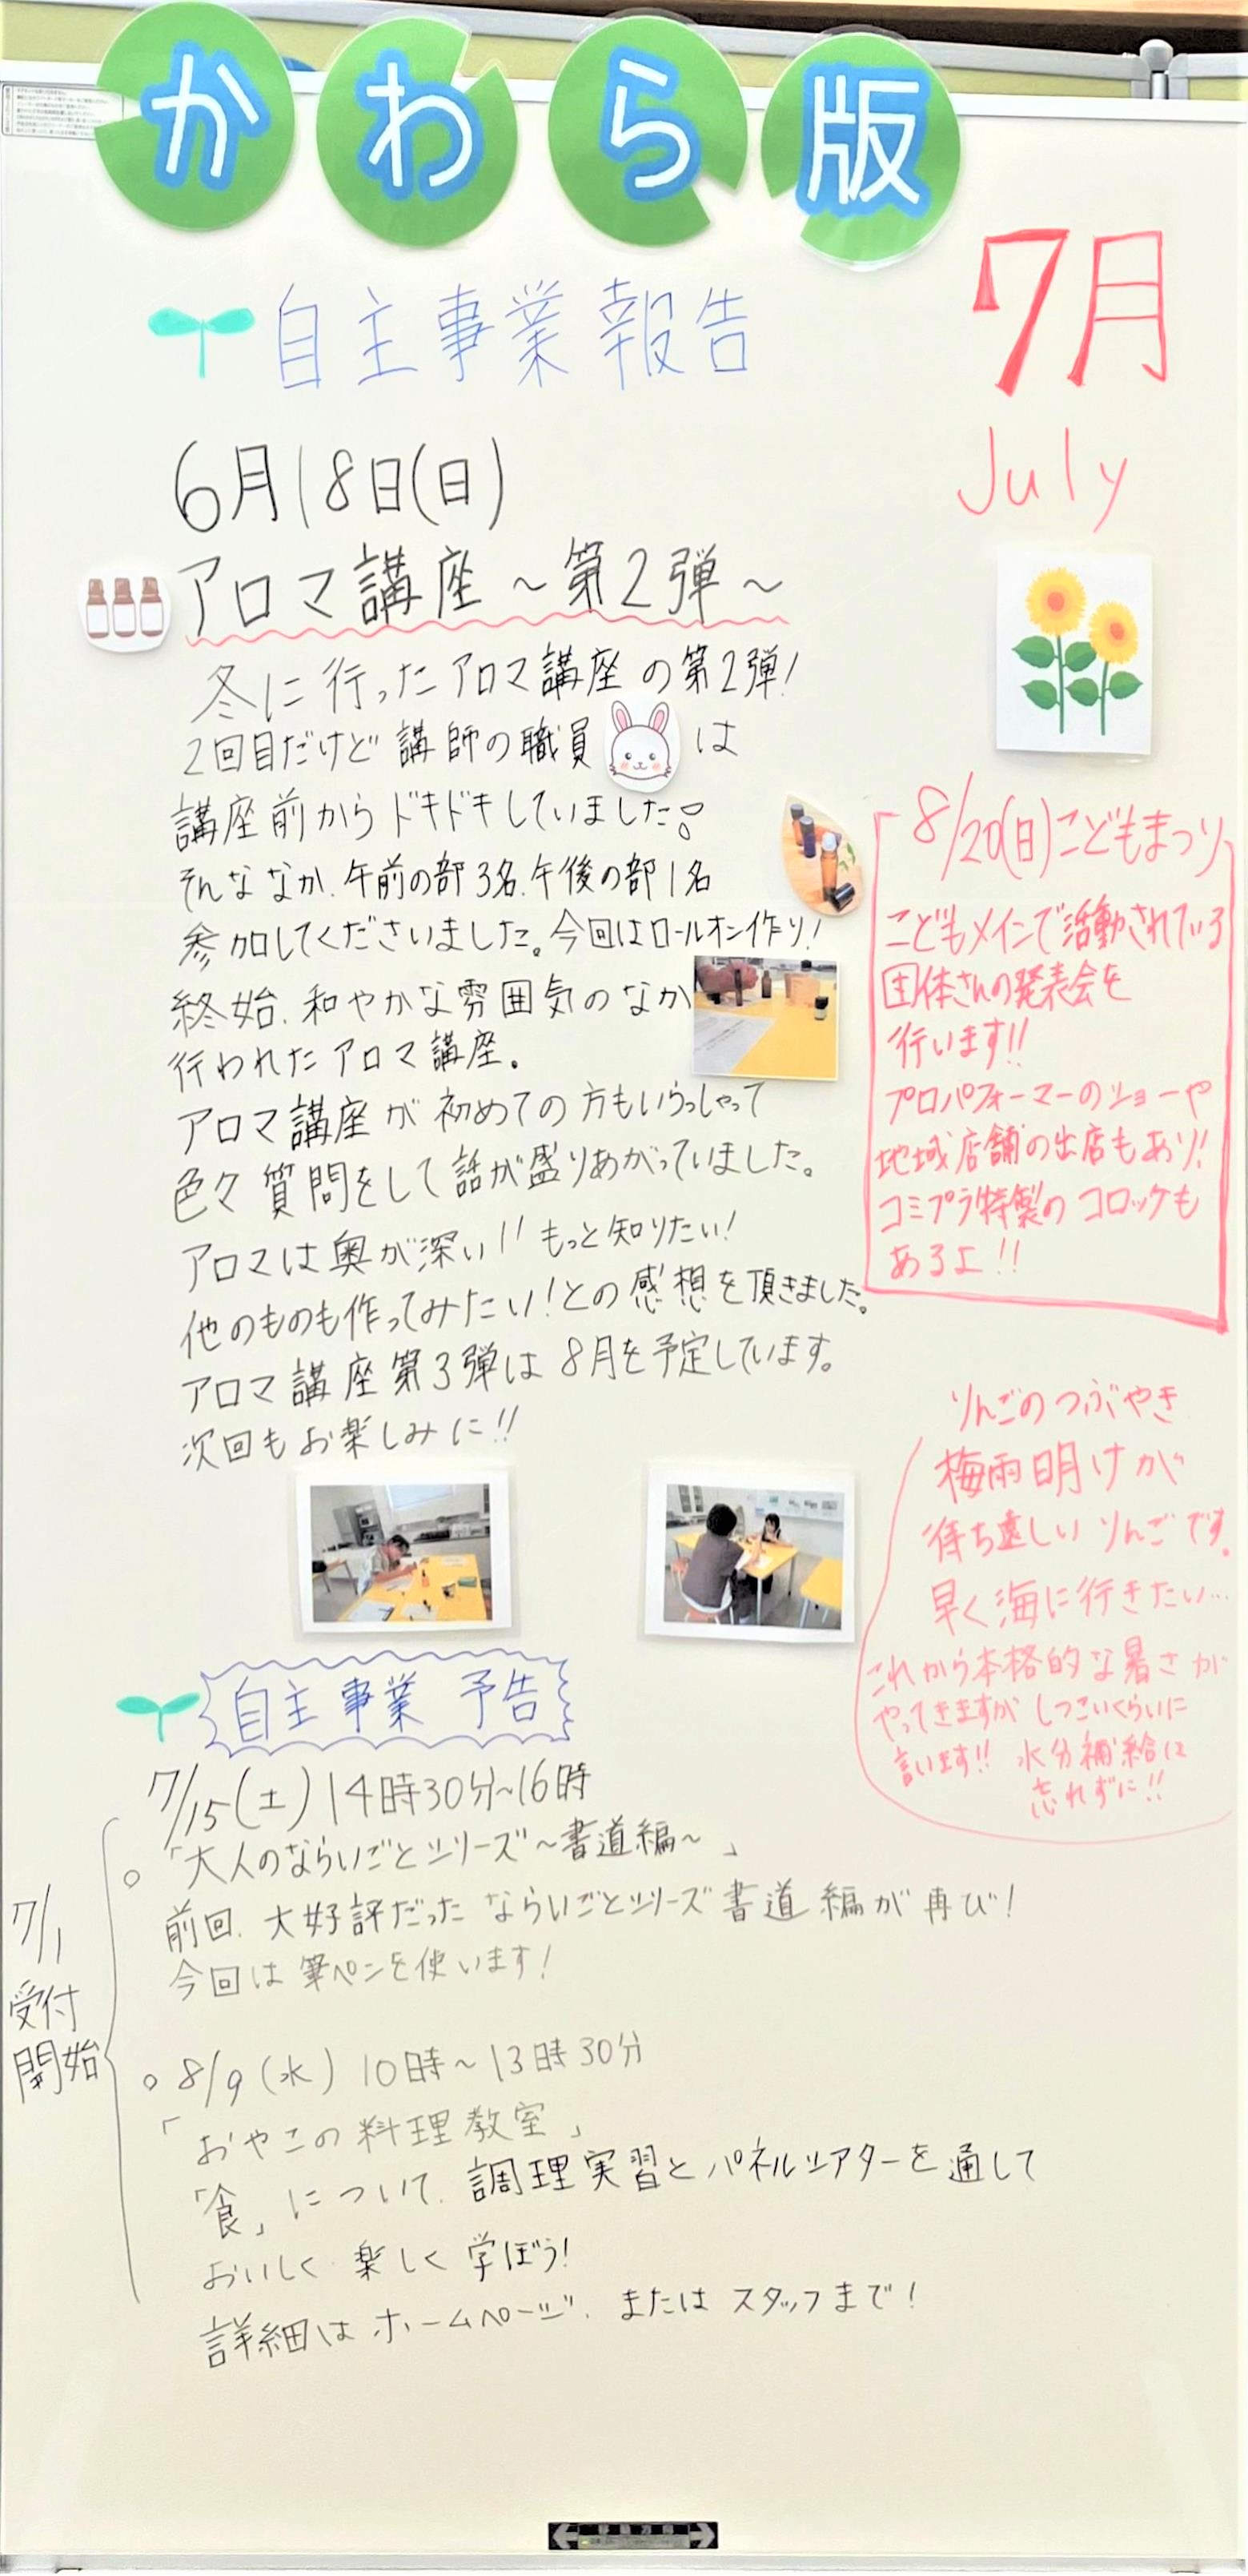 かわら版
7月
July
自主事業報告
6月18日(日)
アロマ講座～第2弾～
冬に行ったアロマ講座の第2弾!
2回目だけど講師の職員は
講座前からドキドキしていました!
そんななか、午前の部3名、午後の部1名
参加してくださいました。今回はロールオン作り!
終始、和やかな雰囲気のなか
行われたアロマ講座。
アロマ講座が初めての方もいらっしゃって
色々質問をして話が盛りあがっていました。
アロマは奥が深い!!もっと知りたい!
他のものも作ってみたい!との感想を頂きました。
アロマ講座第3弾は8月を予定しています。
次回もお楽しみに!!
「8/20(日)こどもまつり」
こどもメインで活動されている
団体さんの発表会を
行います!!
プロパフォーマーのショーや
地域店舗の出店もあり!
コミプラ特製のコロッケも
あるよ!!
りんごのつぶやき
梅雨明けが
待ち遠しいりんごです。
早く海に行きたい…
これから本格的な暑さが
やってきますがしつこいくらいに
言います!!水分補給は
忘れずに!!
自主事業 予告
7/1
受付
開始
7/15(土)14時30分～16時
。「大人のならいごとシリーズ～書道編～」
前回、大好評だったならいごとシリーズ書道編が再び!
今回は筆ペンを使います!
。8/9(水)10時～13時30分
「おやこの料理教室」
「食」について、調理実習とパネルシアターを通して
おいしく楽しく学ぼう!
詳細はホームページ、またはスタッフまで!